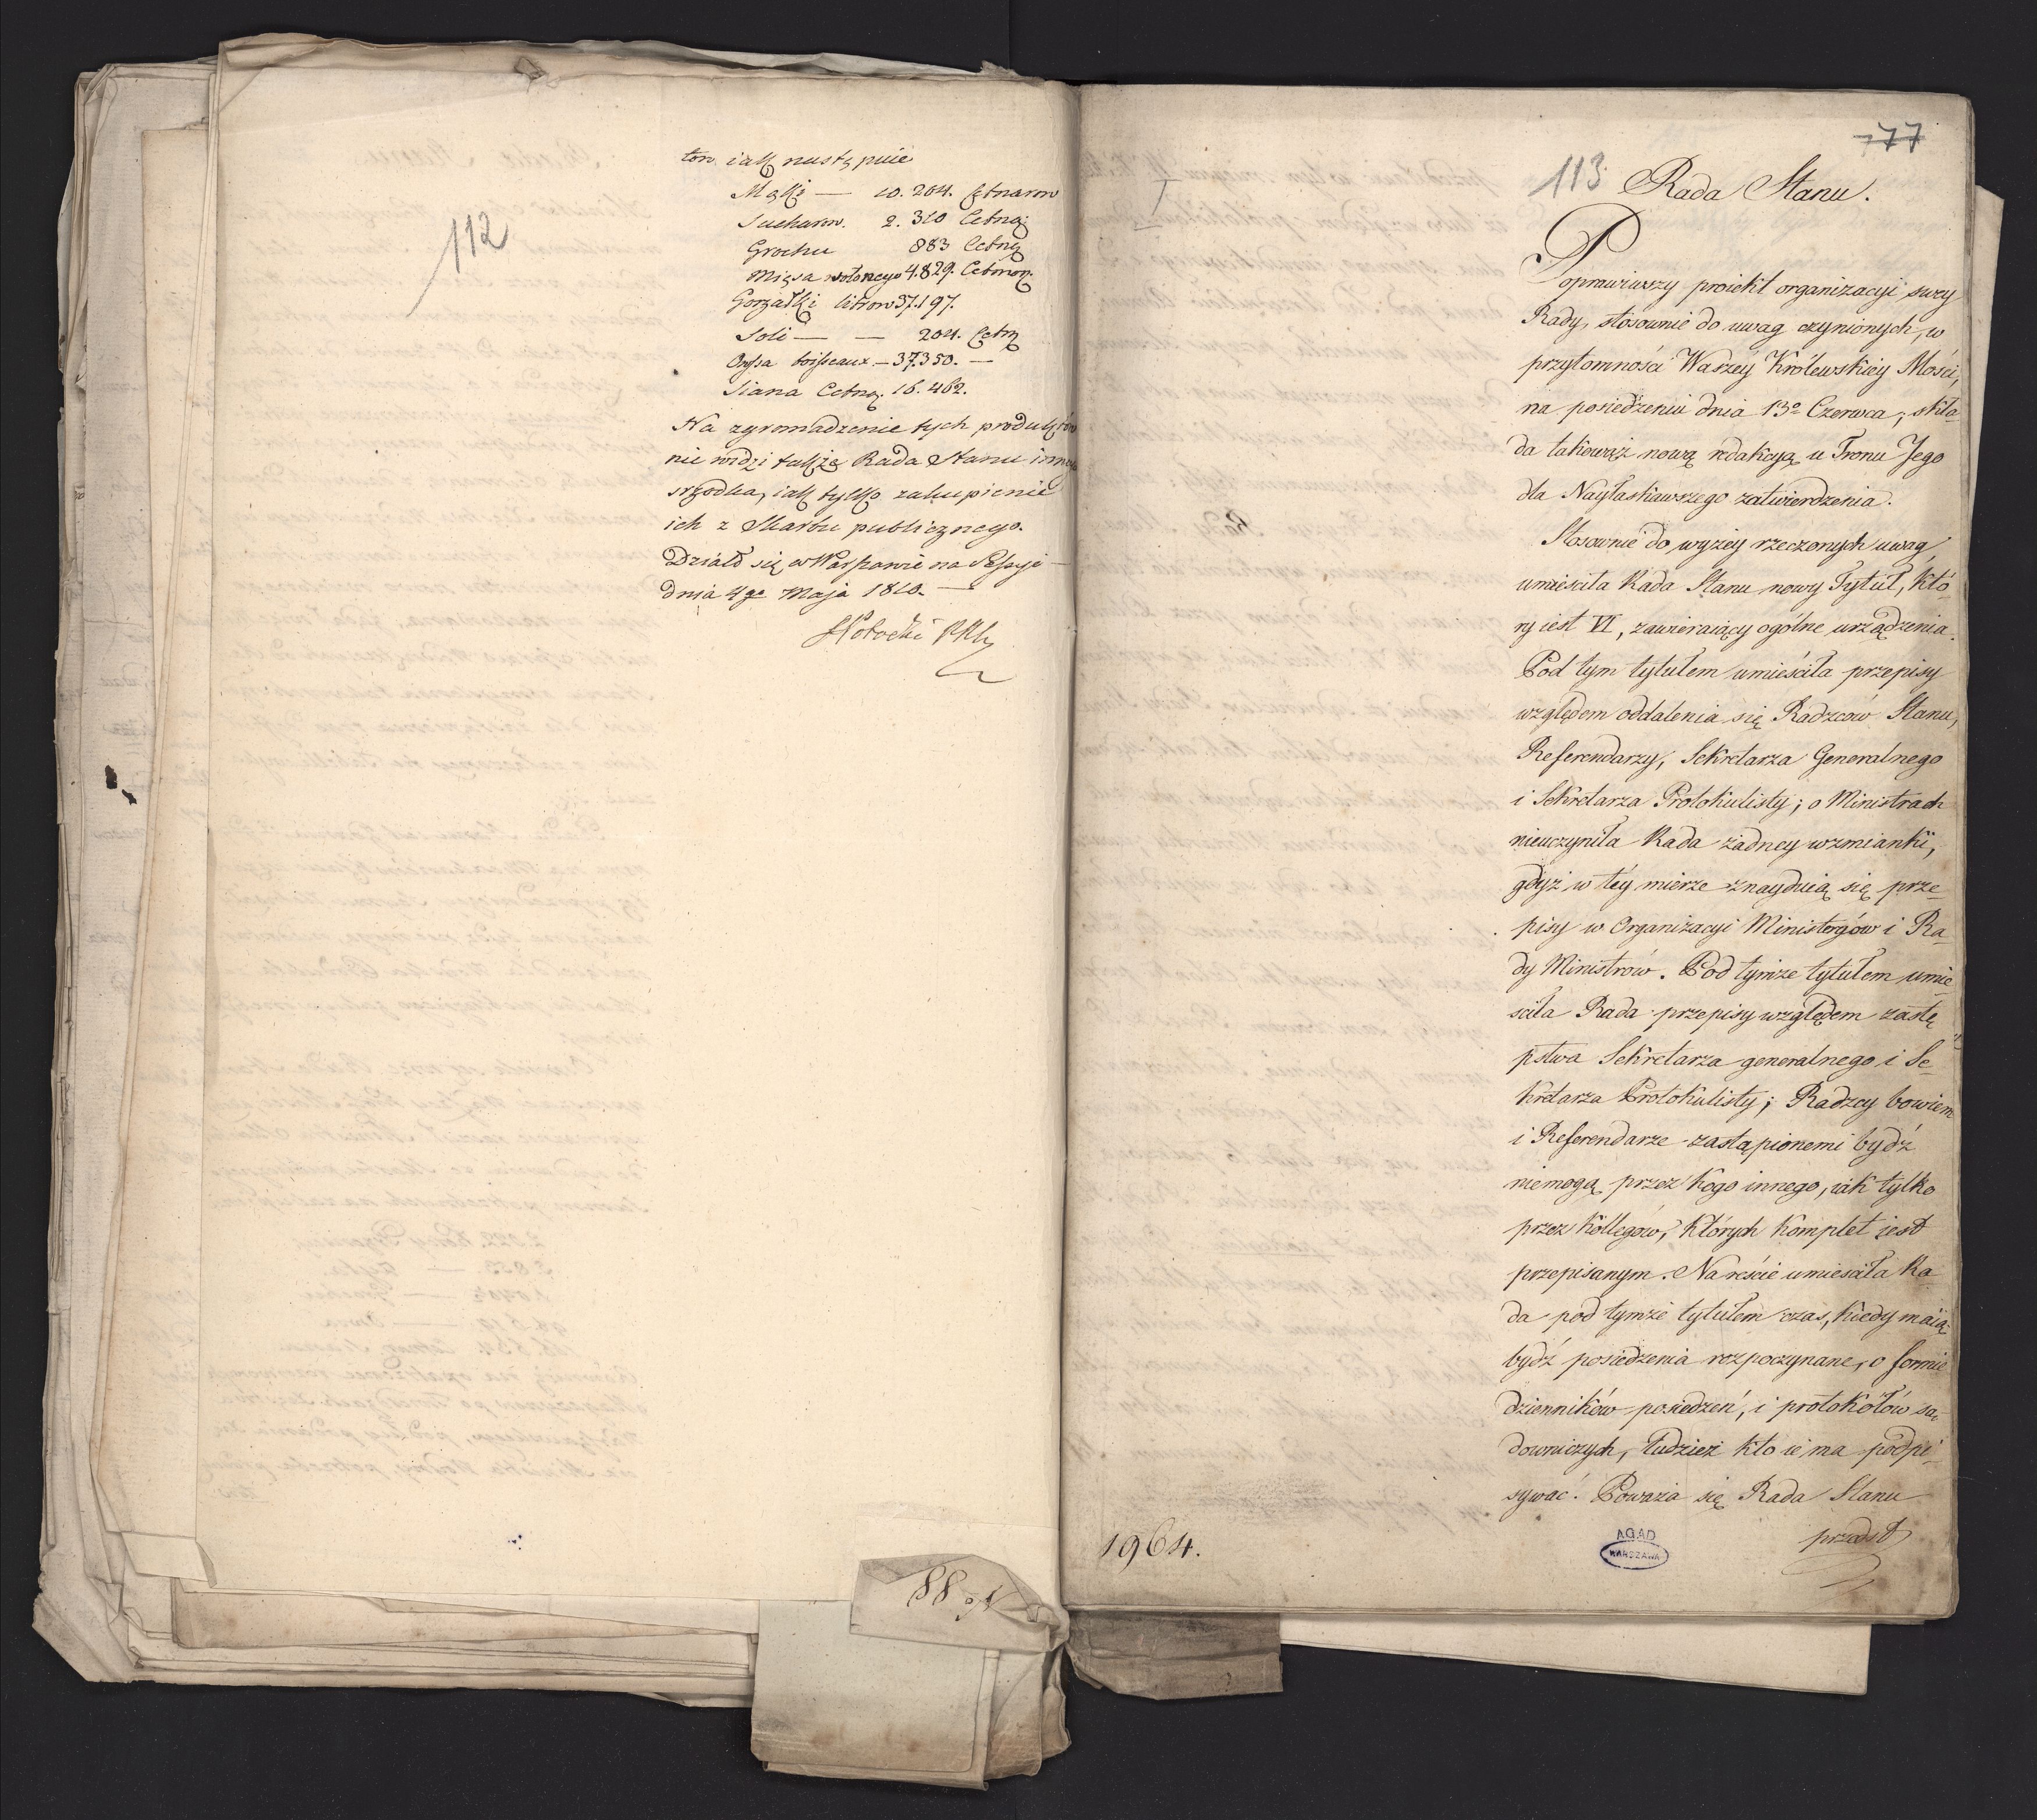 112
tow iak nastąpuie
Mąki — 10. 204. Cętnarow
Sucharow. 2. 310 Cetną:
Grochu 883 Cetną
Mięsa wołowego 4.829. Cetnar.
Gorzałki litrow 37.197.
Soli — — 204. Cetną
Owsa boisseaux. — 37.350. —
Siana Cetną. 16. 462.
Na zgromadzenie tych produktów
nie widzi także Rada Stanu innego
srzodka, iak tylko zakupienie
ich z Skarbu publicznego.
Działo się w Warszawie na Sessyi —
dnia 4go Maja 1810. —
No 88
777
113. Rada Stanu.
Poprawiwszy proiekt organizacyi swey
Rady, stosownie do uwag czynionych, w
przytomności Waszey Królewskiey Mości,
na posiedzeniu dnia 13o Czerwca, skła-
da takowąż nową redakcyą u Tronu Jego
dla Nayłaskawszego zatwierdzenia.
Stosownie do wyżey rzeczonych uwag
umieściła Rada Stanu nowy Tytuł, któ-
ry iest VI, zawieraiący ogólne urządzenia.
Pod tym tytułem umieściła przepisy
względem oddalenia się Radzców Stanu,
Referendarzy, Sekretarza Generalnego
i Sekretarza Protokulisty; o Ministrach
nieuczyniła Rada żadney wzmianki,
gdyż w tey mierze znayduią się prze-
pisy w Organizacyi Ministeryów i Ra-
dy Ministrów. Pod tymże tytułem umie-
sciła Rada przepisy względem zastę
pstwa Sekretarza generalnego i Se-
kretarza Protokulisty; Radzcy bowiem
i Referendarze zastąpionemi bydź
niemogą przez kogo innego, iak tylko
przez Kollegów, których komplet iest
przepisanym. Nareście umieściła Ra-
da pod tymże tytułem czas, kiedy maią
bydź posiedzenia rozpoczynane, o formie
dzienników posiedzeń, i protokółów są-
downiczych, tudzież kto ie ma podpi-
sywać. Poważa się Rada Stanu
przedst
1964.
AGAD
WARSZAWA